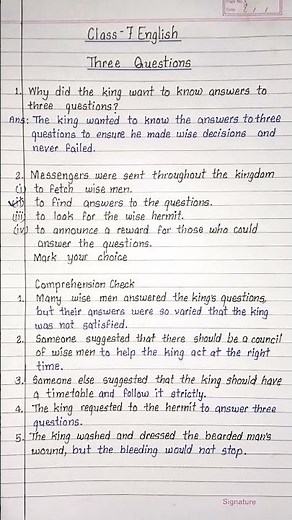 Class-7 English
Three Questions
1. Why did the king want to know answers to
three questions?
Ans: The king wanted to know the answers to three
questions to ensure he made wise decisions and
never failed.
2. Messengers were sent throughout the kingdom
(i) to fetch wise men.
(ii) to find answers to the questions.
(iii) to look for the wise hermit.
(iv) to announce a reward for those who could
answer the questions.
Mark your choice
Comprehension Check
1. Many wise men answered the king's questions,
but their answers were so varied that the king
was not satisfied.
2. Someone suggested that there should be a council
of wise men to help the king act at the right
time.
3. Someone else suggested that the king should have
a timetable and follow it strictly.
4. The king requested to the hermit to answer three
questions.
5. The king washed and dressed the bearded man's
wound, but the bleeding would not stop.
Signature